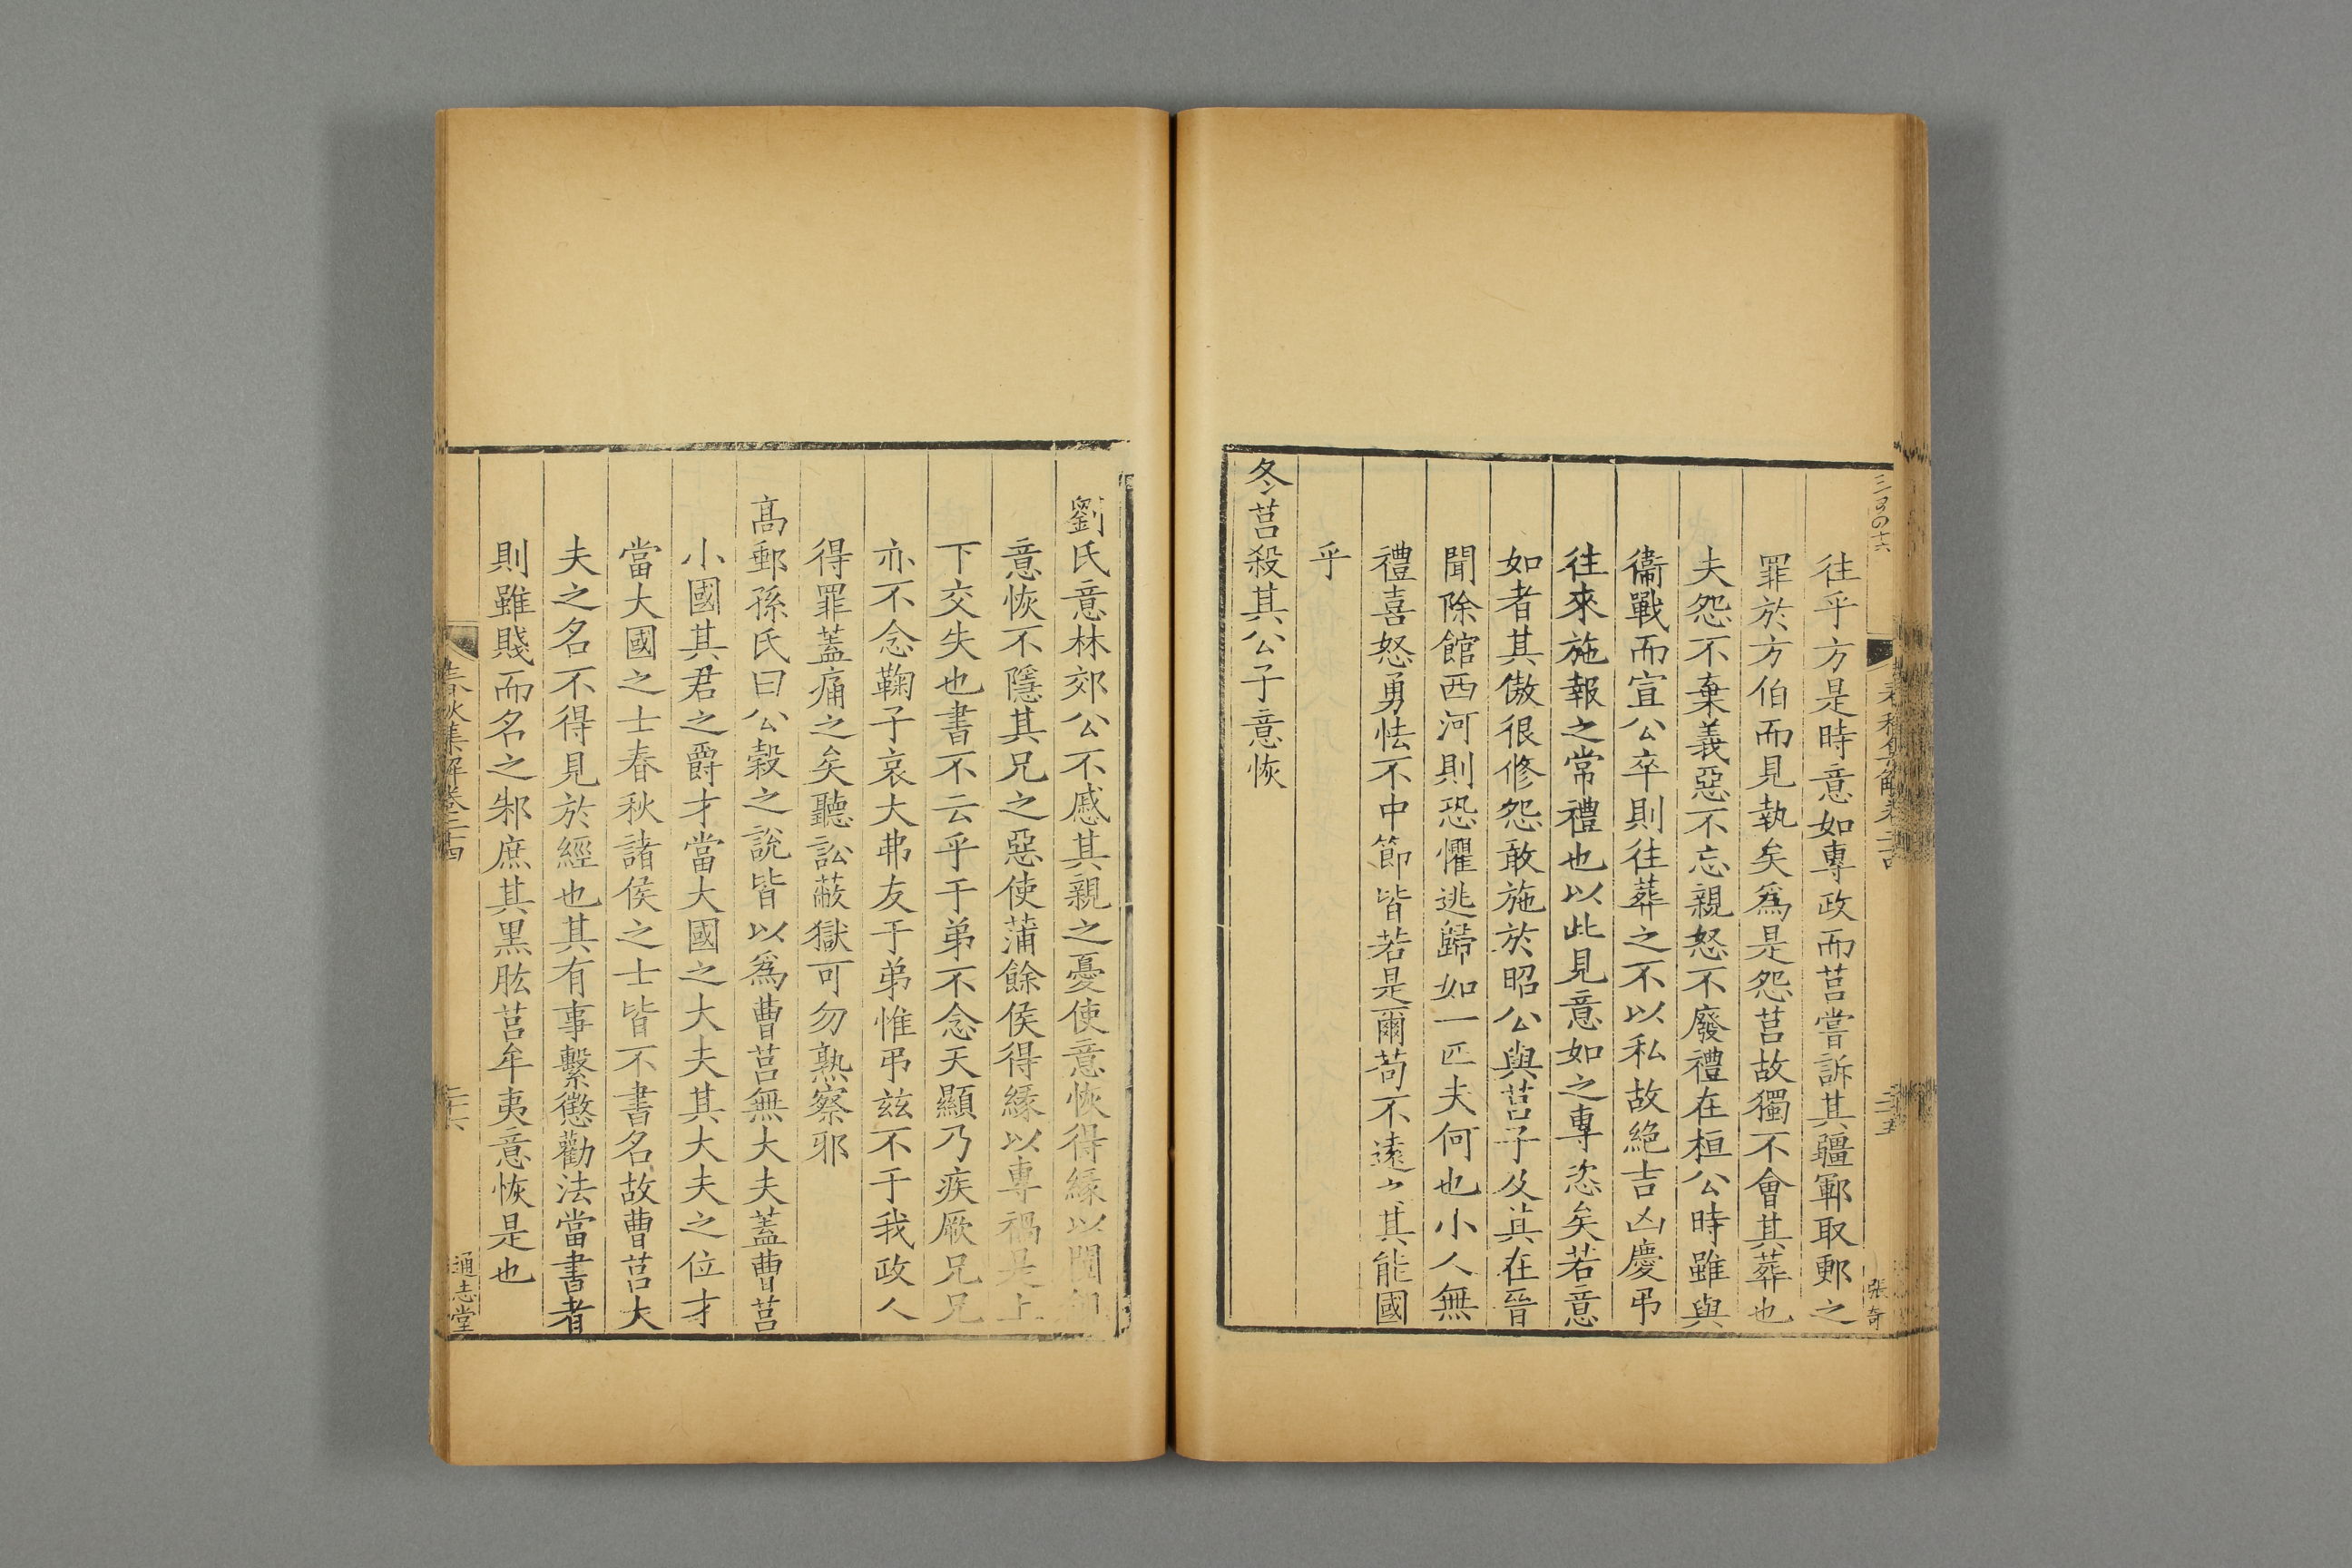 往乎方是時意如專政而莒嘗訴其疆鄆取郠之
罪於方伯而見執矣爲是怨莒故獨不會其葬也
夫怨不棄義惡不忘親怒不廢禮在桓公時雖與
衞戰而宣公卒則往葬之不以私故絶吉凶慶弔
往來施報之常禮也以此見意如之專恣矣若意
如者其傲很修怨敢施於昭公與莒子及其在晉
聞除館西河則恐懼逃歸如一匹夫何也小人無
禮喜怒勇怯不中節皆若是爾苟不遠之其能國
乎
冬莒殺其公子意恢
劉氏意林郊公不慼其親之憂使意恢得緣以閒
意恢不隱其兄之惡使蒲餘侯得緣以專禍是上
下交失也書不云乎于弟不念天顯乃疾厥兄兄
亦不念鞠子哀大弗友于弟惟弔兹不于我政人
得罪蓋痛之矣聽訟蔽獄可勿熟察邪
高郵孫氏曰公穀之說皆以爲曹莒無大夫蓋曹莒
小國其君之爵才當大國之大夫其大夫之位才
當大國之士春秋諸侯之士皆不書名故曹莒大
夫之名不得見於經也其有事繫懲勸法當書者
則雖賤而名之邾庶其黑肱莒牟夷意恢是也
春秋集解卷二十四
二十六
通志堂